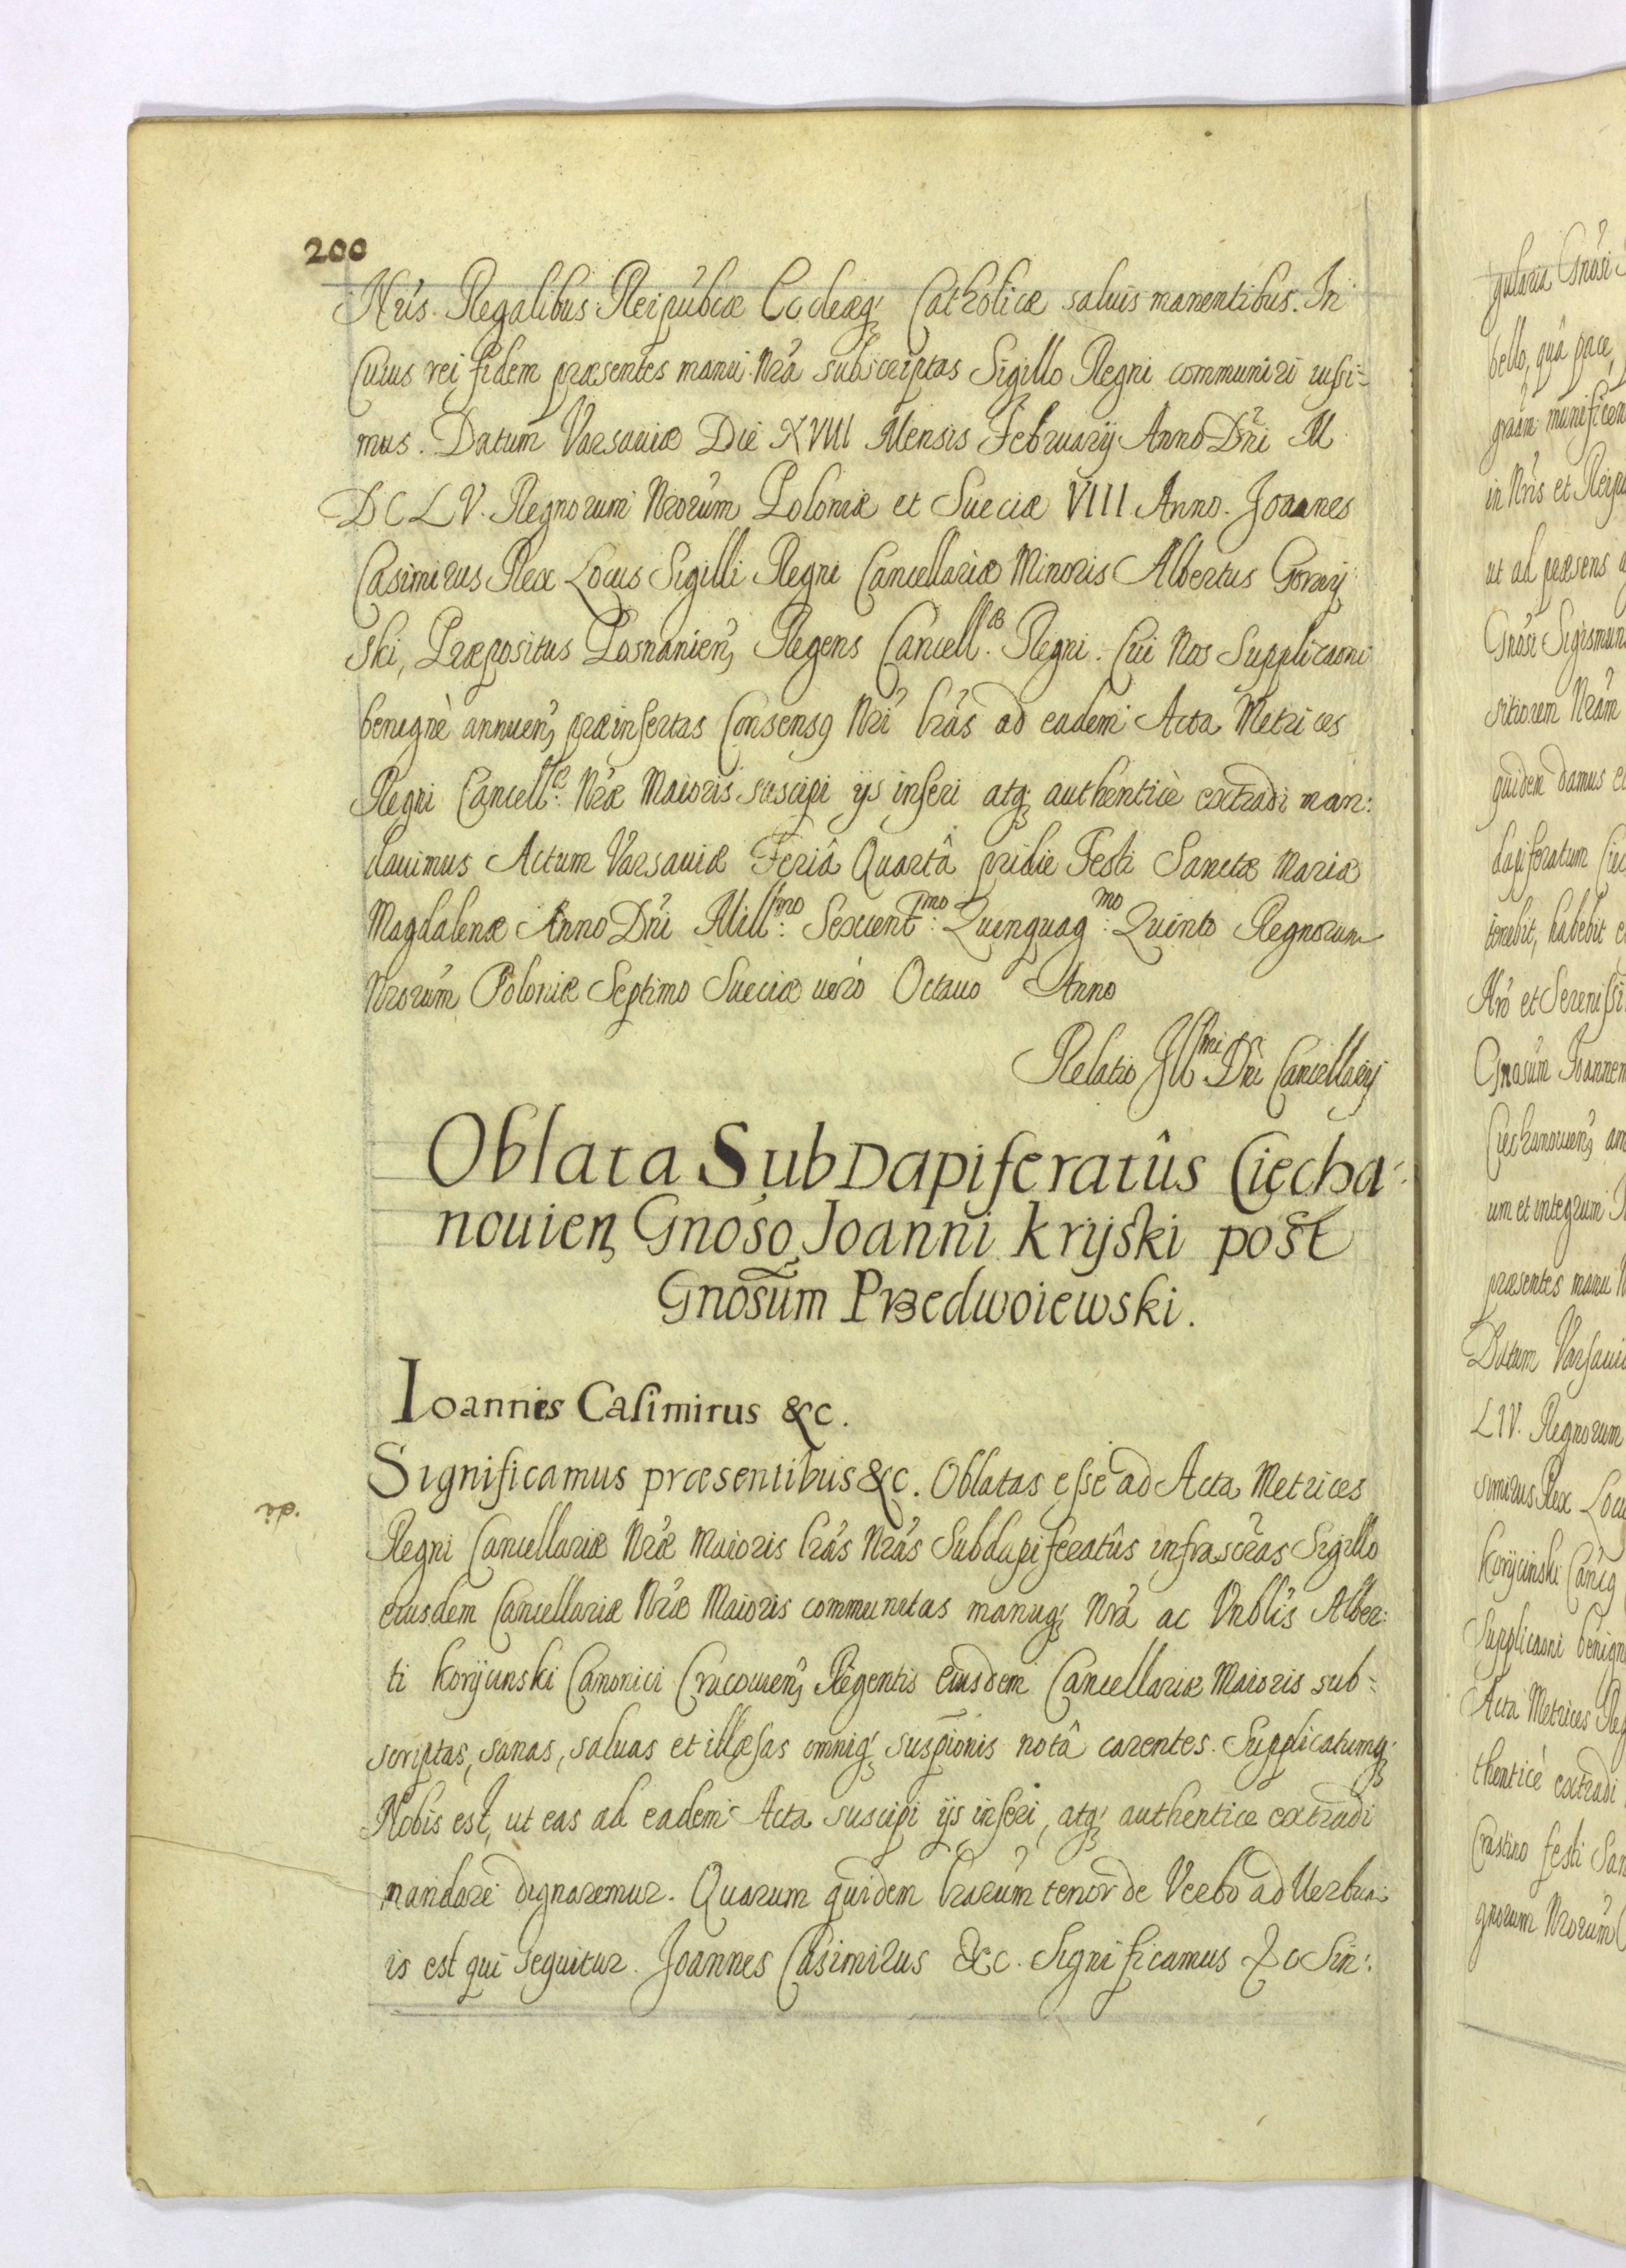 200
Nris Regalibus Reipublicæ Ecclæq; Catholicæ saluis manentibus. In
Cuius rei fidem præsentes manu Nrã subscriptas Sigillo Regni communiri iussi-
mus. Datum Varsaviæ Die XVIII Mensis Februarij Anno Dni M
DCLV. Regnorum Nrorum Poloniæ et Sueciæ VIII Anno. Joannes
Casimirus Rex Locus Sigilli Regni Cancellariæ Minoris Albertus Goray
ski, Præpositus Posnanien; Regens Cancell.æ Regni. Cui Nos Supplicaoni
benignè annuen; præinsertas Consensq Nri lrás ad eadem Acta Metrices
Regni Cancell.æ Nræ Maioris suscipi ijs inseri atq; authenticè extradi man:
davimus Actum Varsaviæ Feriâ Quartâ pridie Festi Sanctæ Mariæ
Magdalenæ Anno Dni Mill.mo Sexcent.mo Quinquag.mo Quinto Regnorum
Nrorum Poloniæ Septimo Sueciæ uero Octauo Anno
Relatio Ill.mi Dni Cancellarij
Oblata SubDapiferatûs Ciecha-
nouien; Gnoso Joanni Kryski post
Gnosum Przedwoiewski.
Ioannes Casimirus &c.
Significamus præsentibus &c. Oblatas esse ad Acta Metrices
Regni Cancellariæ Nræ Maioris lrás Nrás Subdapiferatûs infrascrás Sigillo
eiusdem Cancellariæ Nræ Maioris communitas manuq; Nrá ac Vnblis Alber:
ti Koryciński Canonici Cracouien; Regentis Eiusdem Cancellariæ Maioris sub=
scriptas, sanas, saluas et illæsas omniq; suspionis notâ carentes. Supplicatumq;
Nobis est, ut eas ad eadem Acta suscipi ijs inseri, atq; authentice extradi
mandare dignaremur. Quarum quidem lrarum tenor de Verbo ad Verbum
is est qui sequitur. Joannes Casimirus &c. Significamus &c Sin:
gularia Gnosi
bello, quá pace,
graám munificen
in Nris et Reipu
ut ad præsens
Gnosi Sigismun
sitiorem Nrám
quidem damus
dapiferatum Ciec
tenebit, habebit
Nro et Serenissi
Gnosum Joannem
Ciechanouien;
um et integrum
præsentes manu
Datum Varsavi
LIV. Regnorum
simirus Rex Locu
Koryciński Canq
Supplicaoni benign
Acta Metrices Reg
thenticè extradi
Crastino festi San
gnorum Nrorum